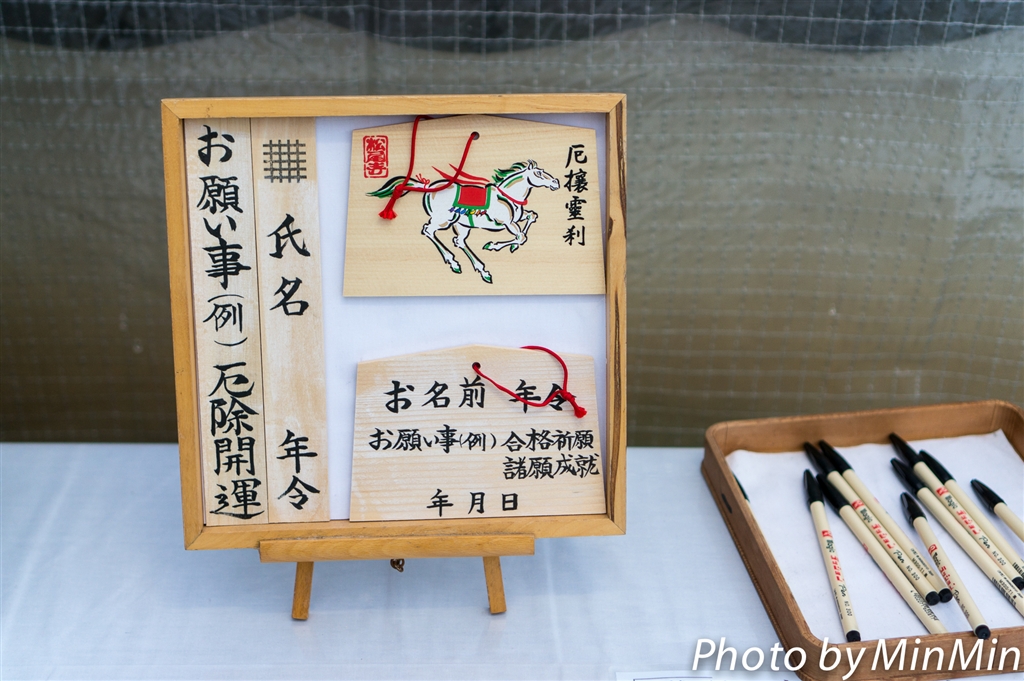 お願い事(例)厄除開運
氏名 年令
松尾寺
厄攘靈刹
お名前 年令
お願い事(例)合格祈願
諸願成就
年月日
Photo by MinMin